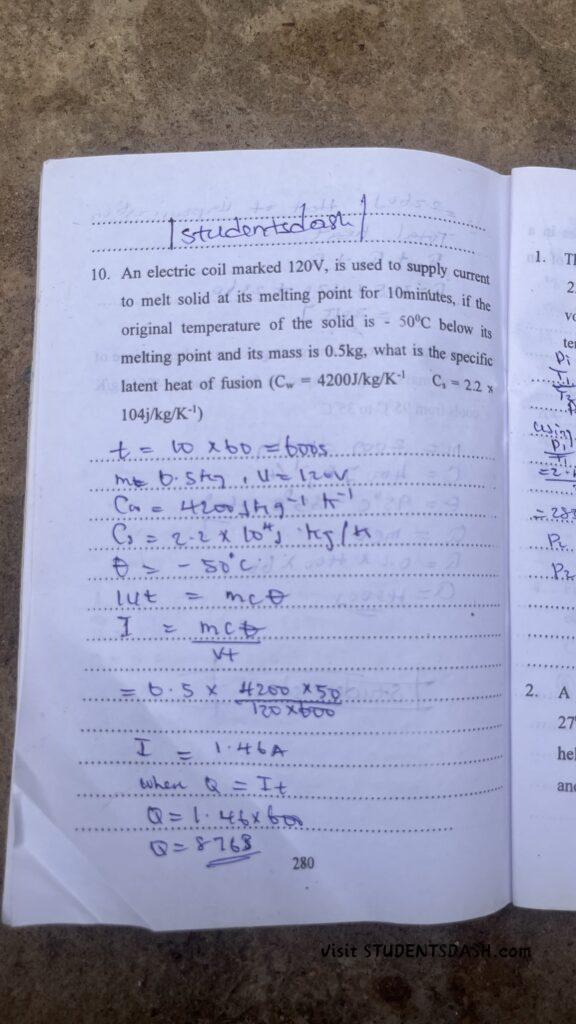 studentsdash
10. An electric coil marked 120V, is used to supply current
to melt solid at its melting point for 10minutes, if the
original temperature of the solid is - 50⁰C below its
melting point and its mass is 0.5kg, what is the specific
latent heat of fusion (Cw = 4200J/kg/K⁻¹ Cs = 2.2 ×
104j/kg/K⁻¹)
t = 10 × 60 = 600s
m = 0.5kg, V = 120V
Cw = 4200Jkg⁻¹ K⁻¹
Cs = 2.2 × 10⁴J kg/K
θ = - 50°C
IVt = mcθ
I = mcθ
Vt
= 0.5 × 4200 × 50
120 × 600
I = 1.46A
when Q = It
Q = 1.46 × 600
Q = 876J
280
1. Th
2.
vo
ter
P1
T1
T2
Using
P1
T1
= 28
P2
P2
2. A
27⁰
hel
and
Visit STUDENTSDASH.com